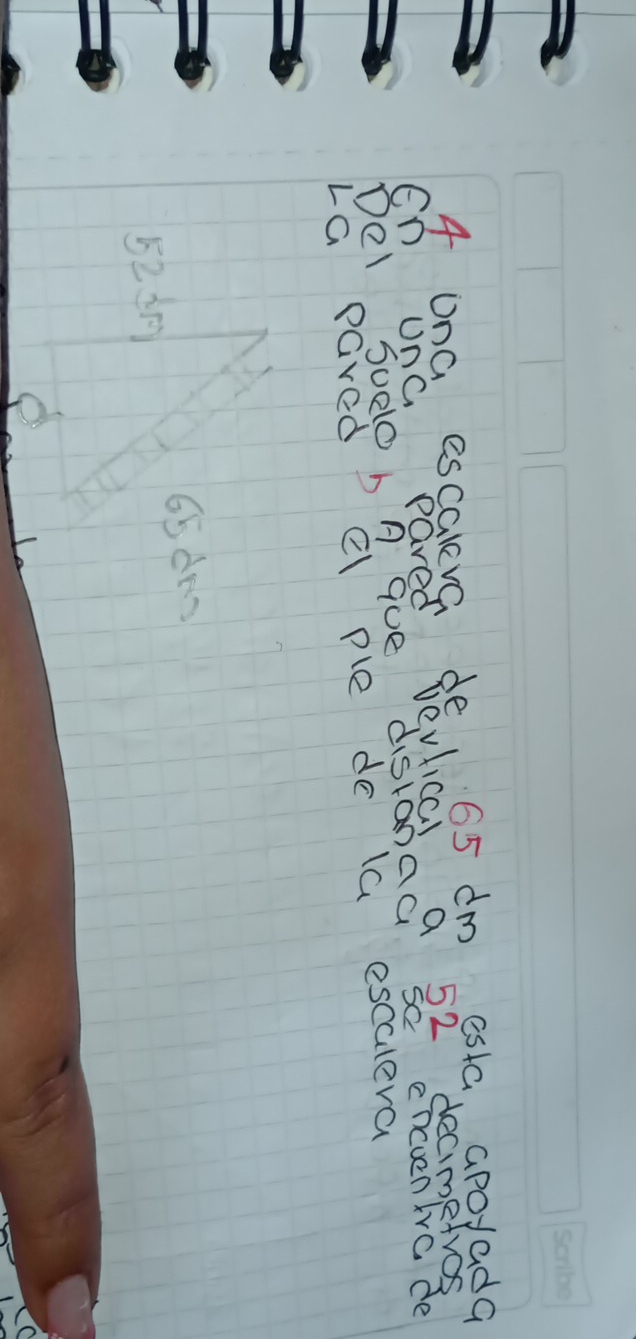 4 Una escalera de 65 dm esta apoyada
En una pared vertical a 52 decimetros
Del suelo b A que distancia se encuentra de
La pared El pie de la escalera
52 dm
65 dm
Scribe